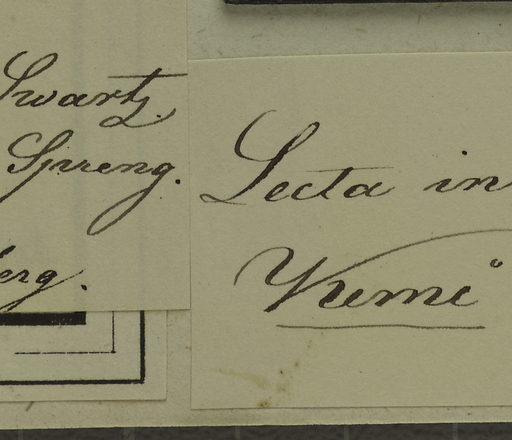 Swartz.
Spreng.
erg.
Lecta in
Kemi